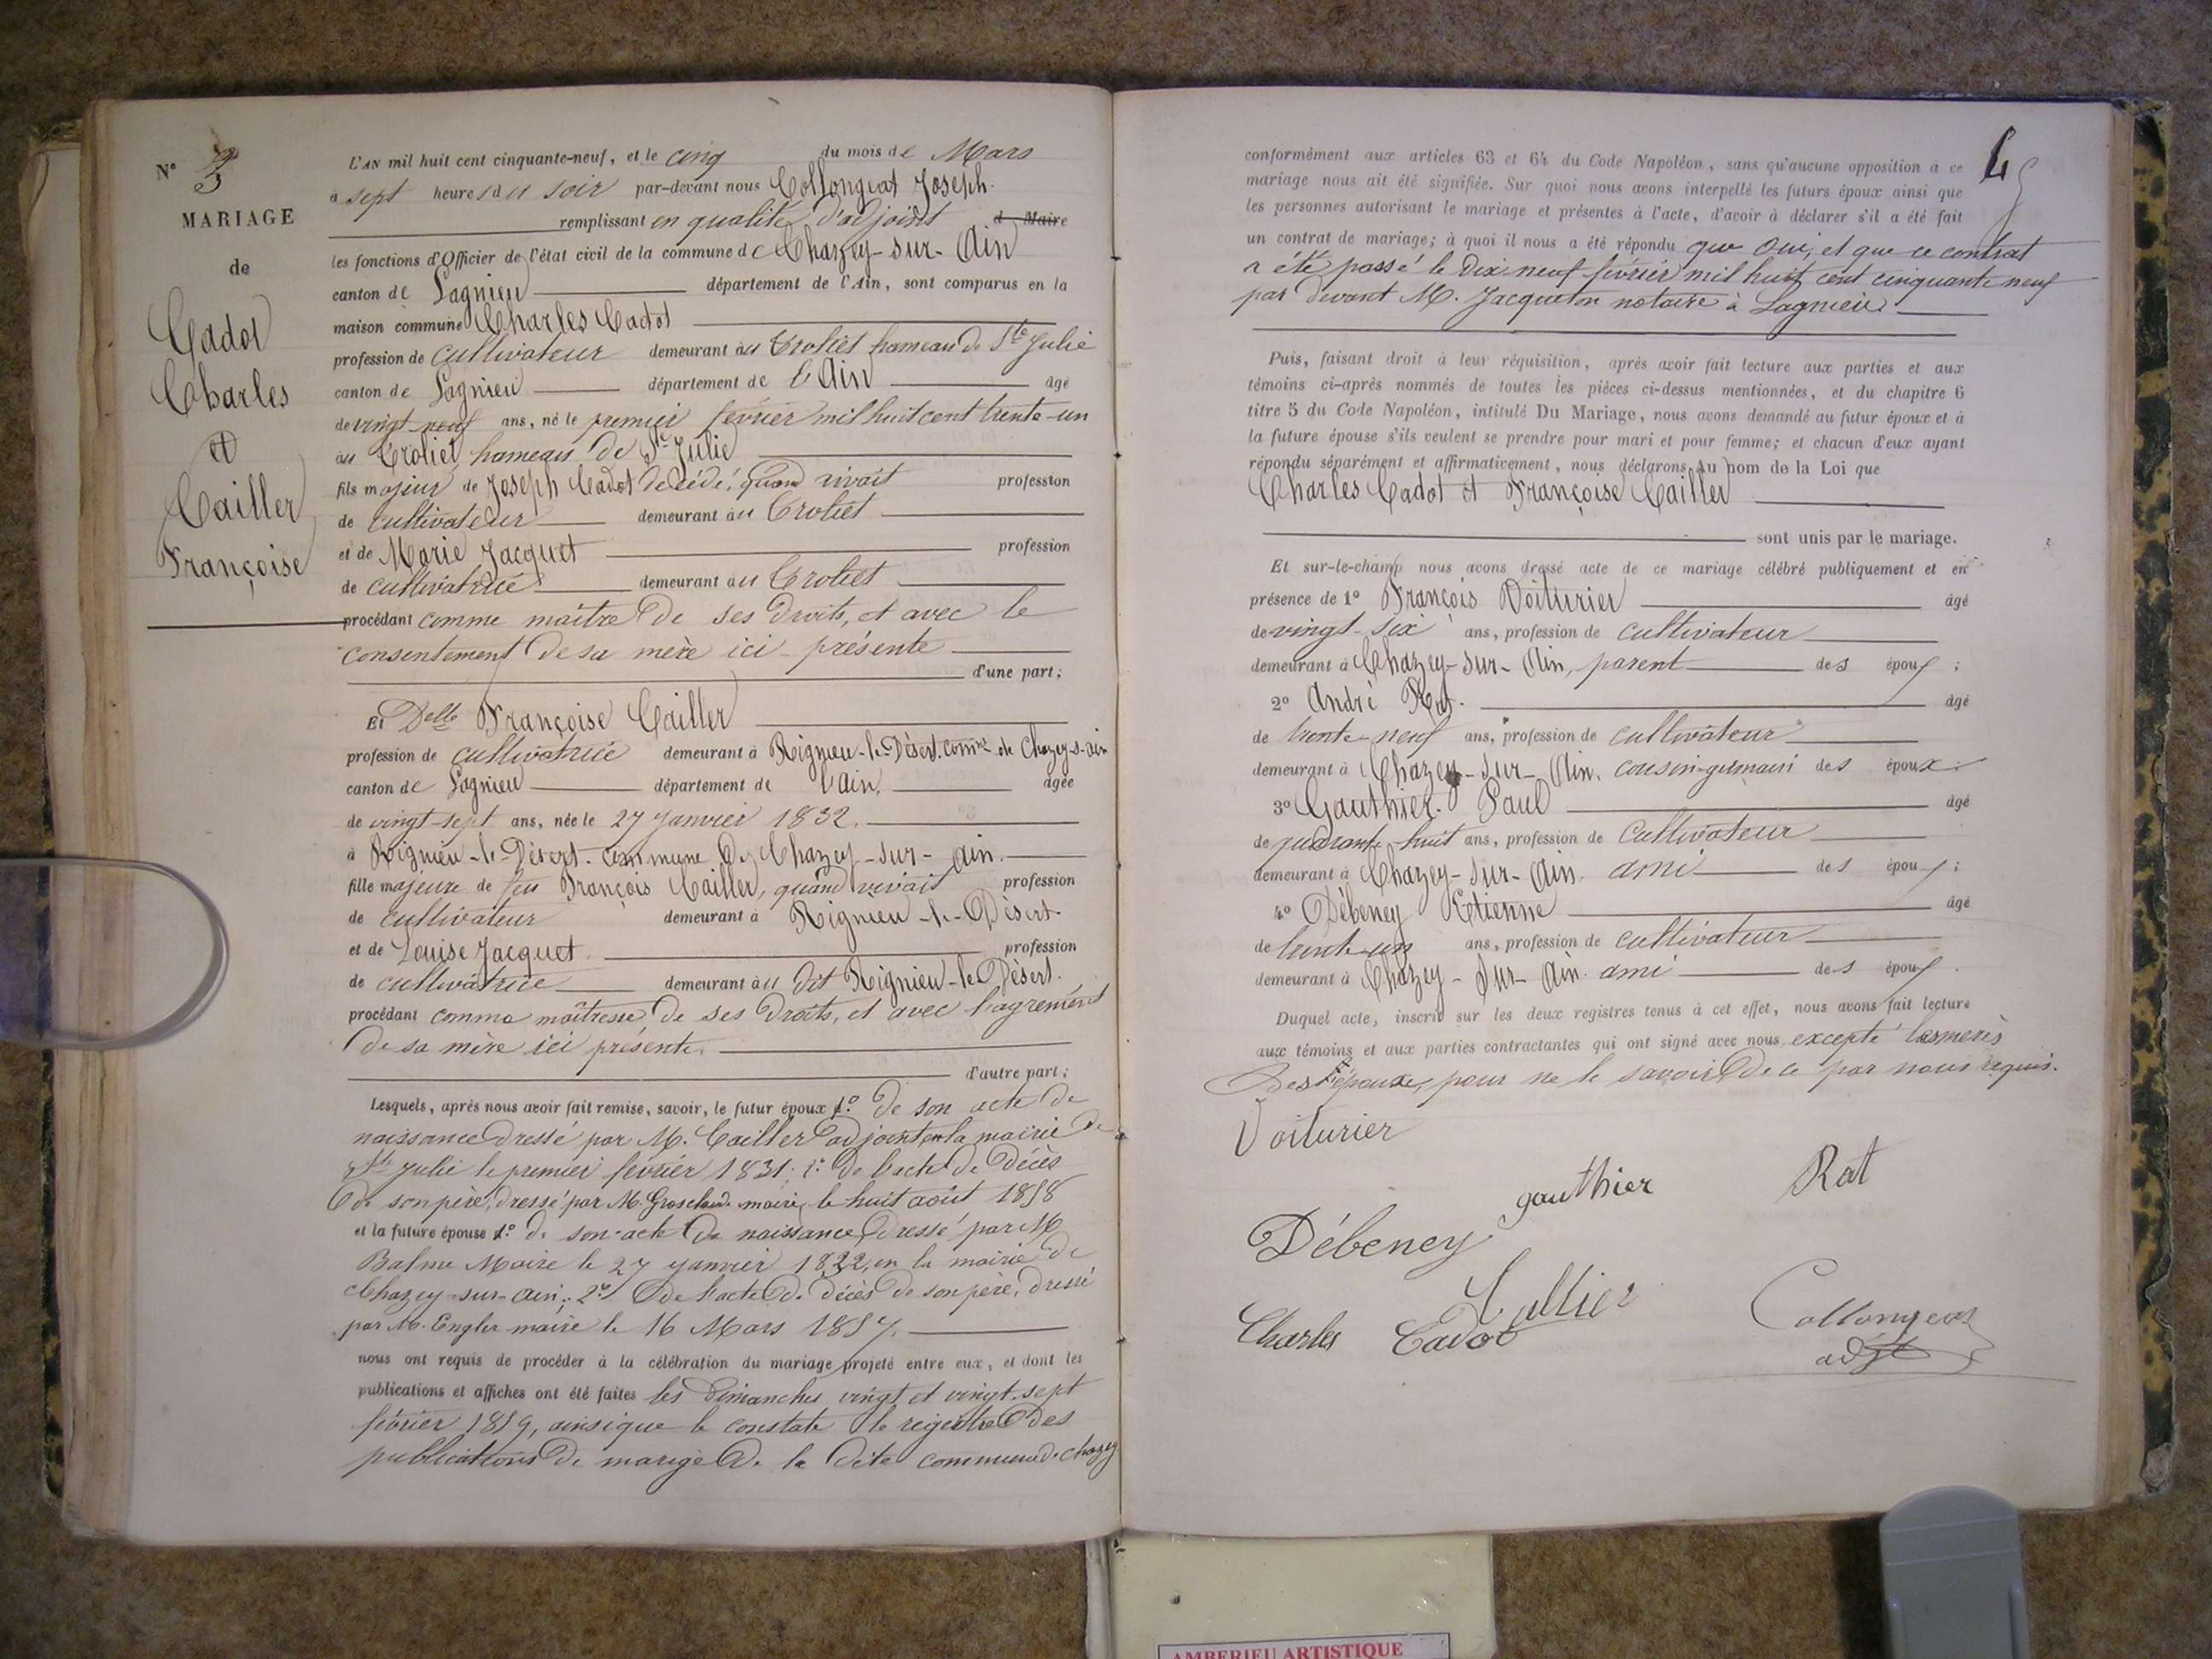 N° 3
MARIAGE
de
Cadot
Charles
et
Cailler
Françoise
L'AN mil huit cent cinquante-neuf, et le cinq du mois de Mars
à sept heures du soir par-devant nous Collongeat Joseph.
remplissant en qualité d'adjoint d Maire
les fonctions d'Officier de l'état civil de la commune de Chazey-sur-Ain
canton de Lagnieu département de l'Ain, sont comparus en la
maison commune Charles Cadot
profession de cultivateur demeurant au Trolliet hameau de Ste Julie
canton de Lagnieu département de l'Ain âgé
de vingt-neuf ans, né le premier février mil huit cent trente-un
au Troliet, hameau de Ste Julie
fils majeur de Joseph Cadot décédé, quand vivait profession
de cultivateur demeurant au Troliet
et de Marie Jacquet profession
de cultivatrice demeurant au Troliet
procédant comme maître de ses droits, et avec le
consentement de sa mère ici-présente
d'une part;
Et Delle Françoise Cailler
profession de cultivatrice demeurant à Rignieu-le-Désert. comne de Chazey-s-ain
canton de Lagnieu département de l'Ain, âgée
de vingt-sept ans, née le 27 janvier 1832.
à Rignieu-le-Désert. commune de Chazey-sur-Ain.
fille majeure de feu François Cailler, quand vivait profession
de cultivateur demeurant à Rignieu-le-Désert.
et de Louise Jacquet. profession
de cultivatrice demeurant au dit Rignieu-le-Désert.
procédant comme maîtresse de ses droits, et avec l'agrément
de sa mère ici présente.
d'autre part;
Lesquels, après nous avoir fait remise, savoir, le futur époux 1° de son acte de
naissance dressé par M. Cailler adjoint en la mairie de
Ste Julie le premier février 1831; 2° de l'acte de décès
de son père, dressé par M. Grosclaude maire, le huit août 1858
et la future épouse 1° de son acte de naissance, dressé par M
Balme Maire le 27 janvier 1832, en la mairie de
Chazey-sur-ain; 2° de l'acte de décès de son père, dressé
par M. Engler maire le 16 Mars 1857.
nous ont requis de procéder à la célébration du mariage projeté entre eux, et dont les
publications et affiches ont été faites les dimanches vingt et vingt-sept
février 1859, ainsi que le constate le registre des
publications de marige de la dite commune de Chazey
4
conformément aux articles 63 et 64 du Code Napoléon, sans qu'aucune opposition à ce
mariage nous ait été signifiée. Sur quoi nous avons interpellé les futurs époux ainsi que
les personnes autorisant le mariage et présentes à l'acte, d'avoir à déclarer s'il a été fait
un contrat de mariage; à quoi il nous a été répondu que Oui, et que ce contrat
a été passé le Dix neuf février mil huit cent cinquante neuf
par devant M. Jacqueton notaire à Lagnieu
Puis, faisant droit à leur réquisition, après avoir fait lecture aux parties et aux
témoins ci-après nommés de toutes les pièces ci-dessus mentionnées, et du chapitre 6
titre 5 du Code Napoléon, intitulé Du Mariage, nous avons demandé au futur époux et à
la future épouse s'ils veulent se prendre pour mari et pour femme; et chacun d'eux ayant
répondu séparément et affirmativement, nous déclarons Au nom de la Loi que
Charles Cadot et Françoise Cailler
sont unis par le mariage.
Et sur-le-champ nous avons dressé acte de ce mariage célébré publiquement et en
présence de 1° François Voiturier âgé
de vingt-six ans, profession de cultivateur
demeurant à Chazey-sur-Ain, parent des époux;
2° André Rat. âgé
de trente-neuf ans, profession de cultivateur
demeurant à Chazey-sur-Ain. cousin-germain des époux
3° Gauthier. Paul âgé
de quarante-huit ans, profession de Cultivateur
demeurant à Chazey-sur-Ain. ami des époux;
4° Débeney Etienne âgé
de trente-un ans, profession de cultivateur
demeurant à Chazey-sur-Ain. ami des époux.
Duquel acte, inscrit sur les deux registres tenus à cet effet, nous avons fait lecture
aux témoins et aux parties contractantes qui ont signé avec nous excepté les mères
des époux, pour ne le savoir de ce par nous requis.
Voiturier
gauthier
Rat
Débeney
Callier
Collongeat
adjt
Charles Cadot
AMBERIEU ARTISTIQUE